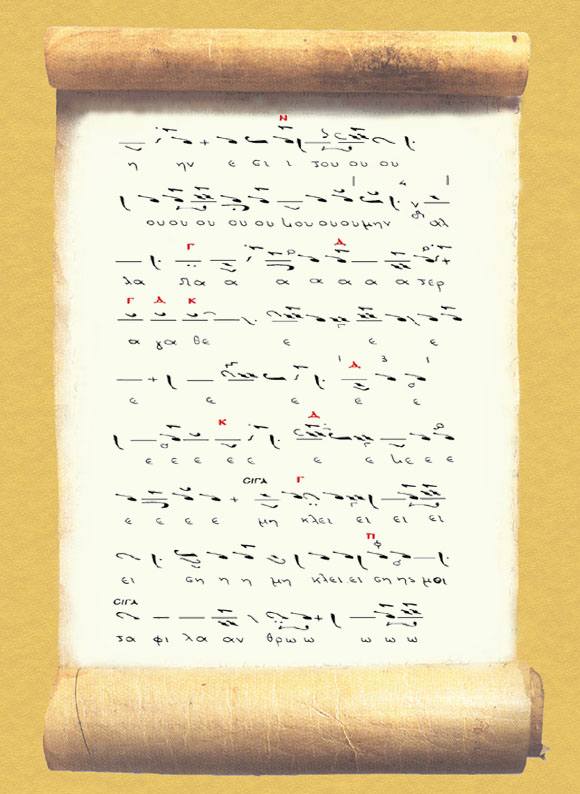 Ν
η ην ε ι του ου ου
ουου ου ου ου ουουμην αλ
Γ Δ
λα πα α α α α α α τερ
Γ Δ Κ
α γα θε ε ε ε
Δ
ε ε ε ε ε
Κ Δ
ε ε ε ε ε ε ε κε ε ε
ϹΙΓΑ Γ
ε ε ε ε μη κλει ει ει ει
Π
ει ση η η μη κλει ει ση ης μοι
ϹΙΓΑ
τα φι λα αν θρω ω ω ω ω